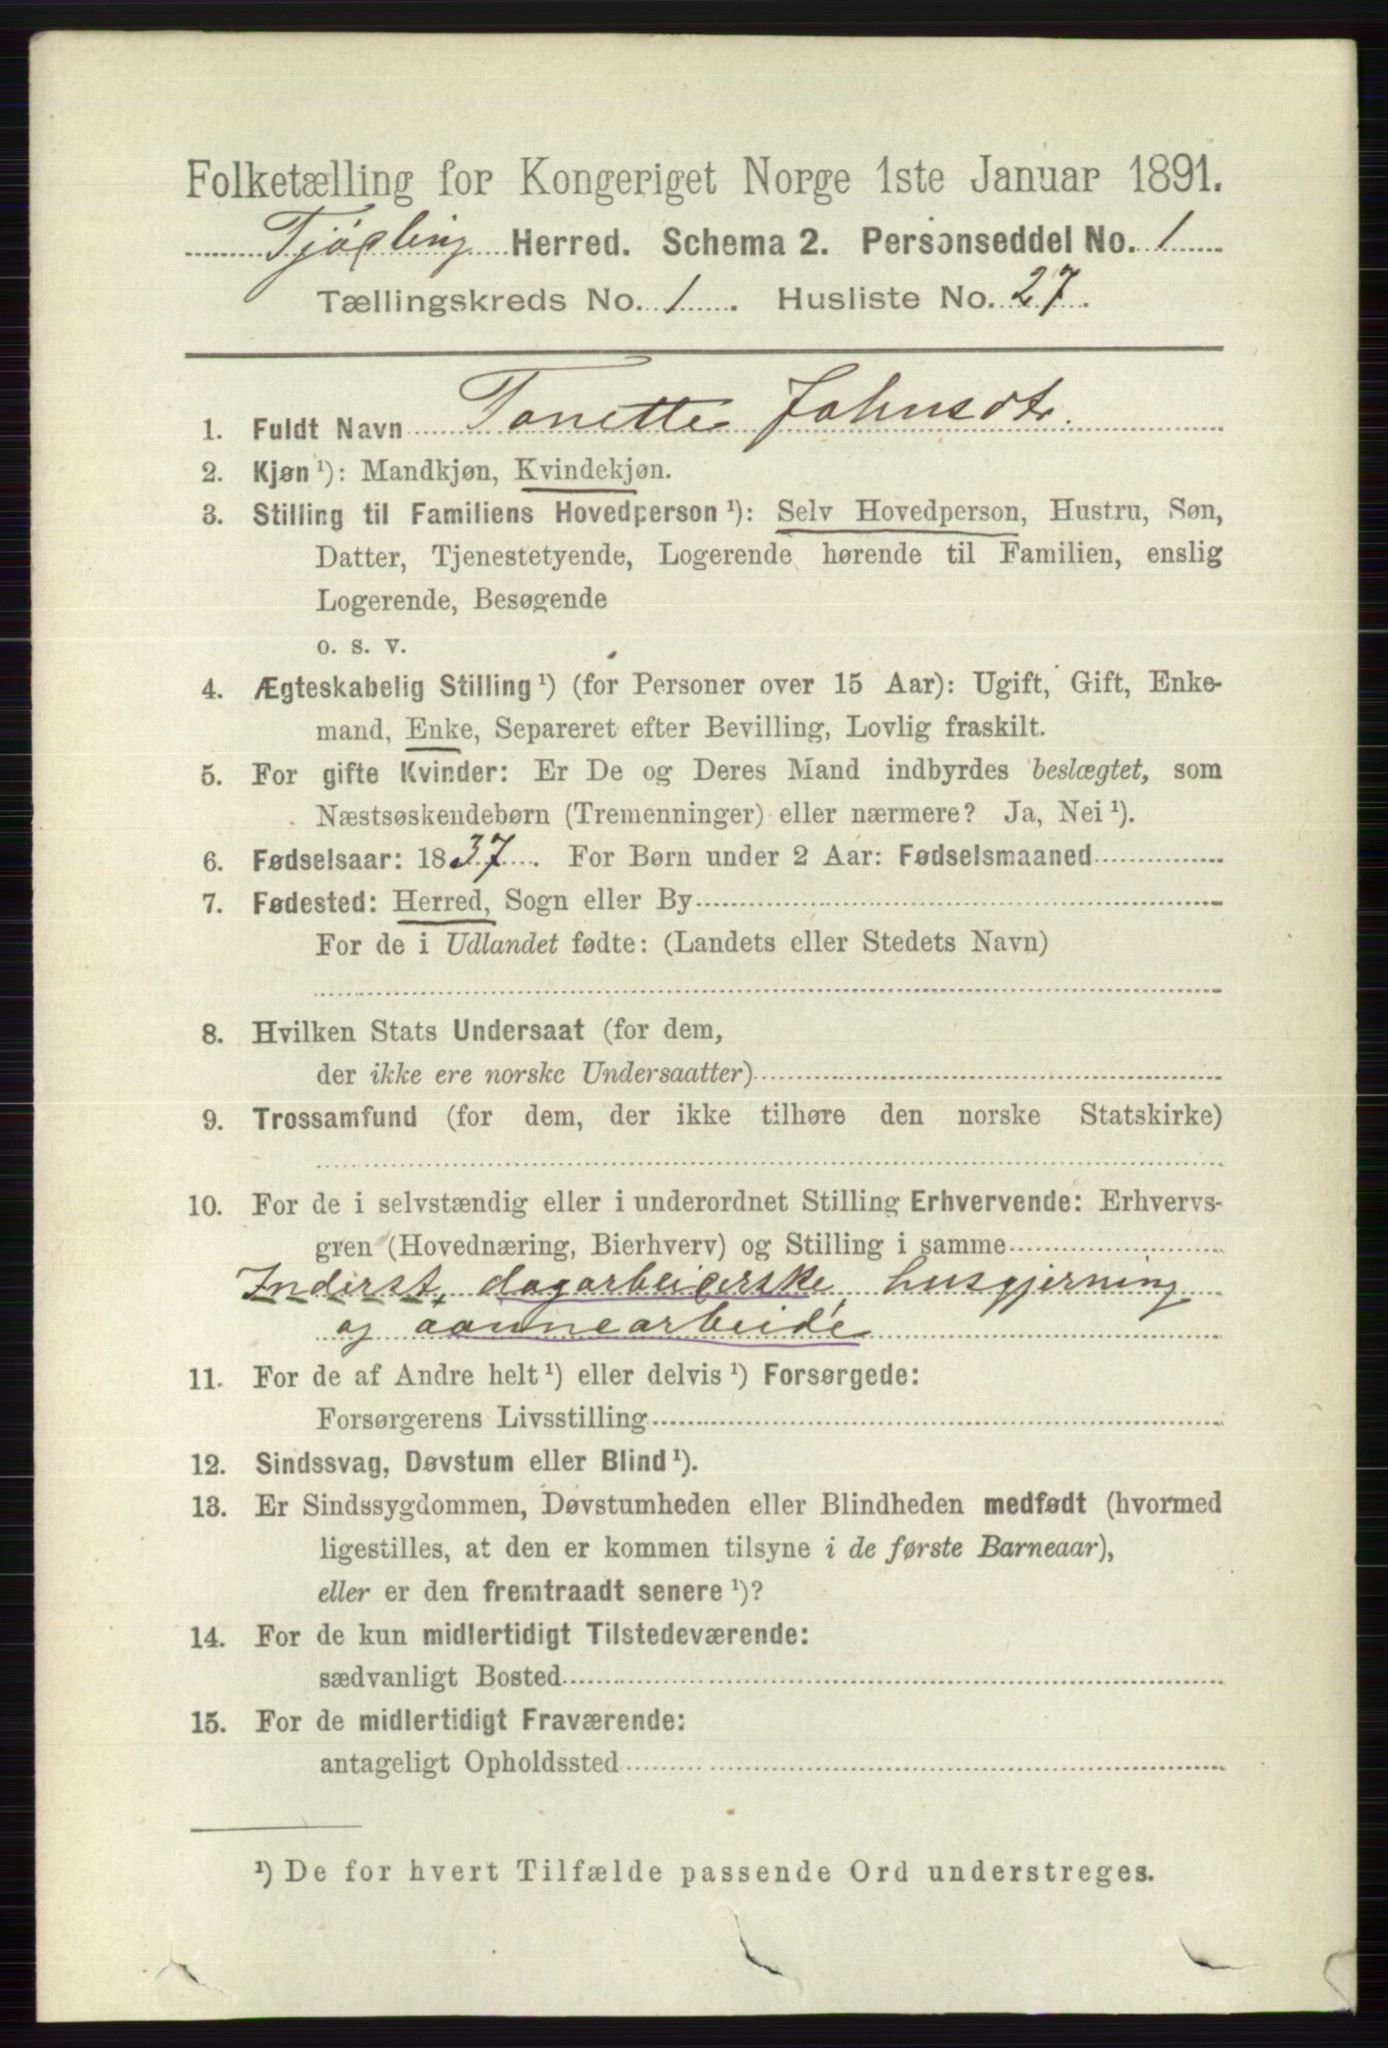 Folketælling for Kongeriget Norge 1ste Januar 1891.
Tjødling Herred. Schema 2. Personseddel No. 1
Tællingskreds No. 1. Husliste No. 27.
1. Fuldt Navn Tonette Johnsdtr.
2. Kjøn ¹): Mandkjøn, Kvindekjøn.
3. Stilling til Familiens Hovedperson ¹): Selv Hovedperson, Hustru, Søn,
Datter, Tjenestetyende, Logerende hørende til Familien, enslig
Logerende, Besøgende
o. s. v.
4. Ægteskabelig Stilling ¹) (for Personer over 15 Aar): Ugift, Gift, Enke-
mand, Enke, Separeret efter Bevilling, Lovlig fraskilt.
5. For gifte Kvinder: Er De og Deres Mand indbyrdes beslægtet, som
Næstsøskendebørn (Tremenninger) eller nærmere? Ja, Nei ¹).
6. Fødselsaar: 1837. For Børn under 2 Aar: Fødselsmaaned
7. Fødested: Herred, Sogn eller By
For de i Udlandet fødte: (Landets eller Stedets Navn)
8. Hvilken Stats Undersaat (for dem,
der ikke ere norske Undersaatter)
9. Trossamfund (for dem, der ikke tilhøre den norske Statskirke)
10. For de i selvstændig eller i underordnet Stilling Erhvervende: Erhvervs-
gren (Hovednæring, Bierhverv) og Stilling i samme
Inderst, dagarbeiderske, husgjerning
og aannearbeide
11. For de af Andre helt ¹) eller delvis ¹) Forsørgede:
Forsørgerens Livsstilling
12. Sindssvag, Døvstum eller Blind ¹).
13. Er Sindssygdommen, Døvstumheden eller Blindheden medfødt (hvormed
ligestilles, at den er kommen tilsyne i de første Barneaar),
eller er den fremtraadt senere ¹)?
14. For de kun midlertidigt Tilstedeværende:
sædvanligt Bosted
15. For de midlertidigt Fraværende:
antageligt Opholdssted
¹) De for hvert Tilfælde passende Ord understreges.